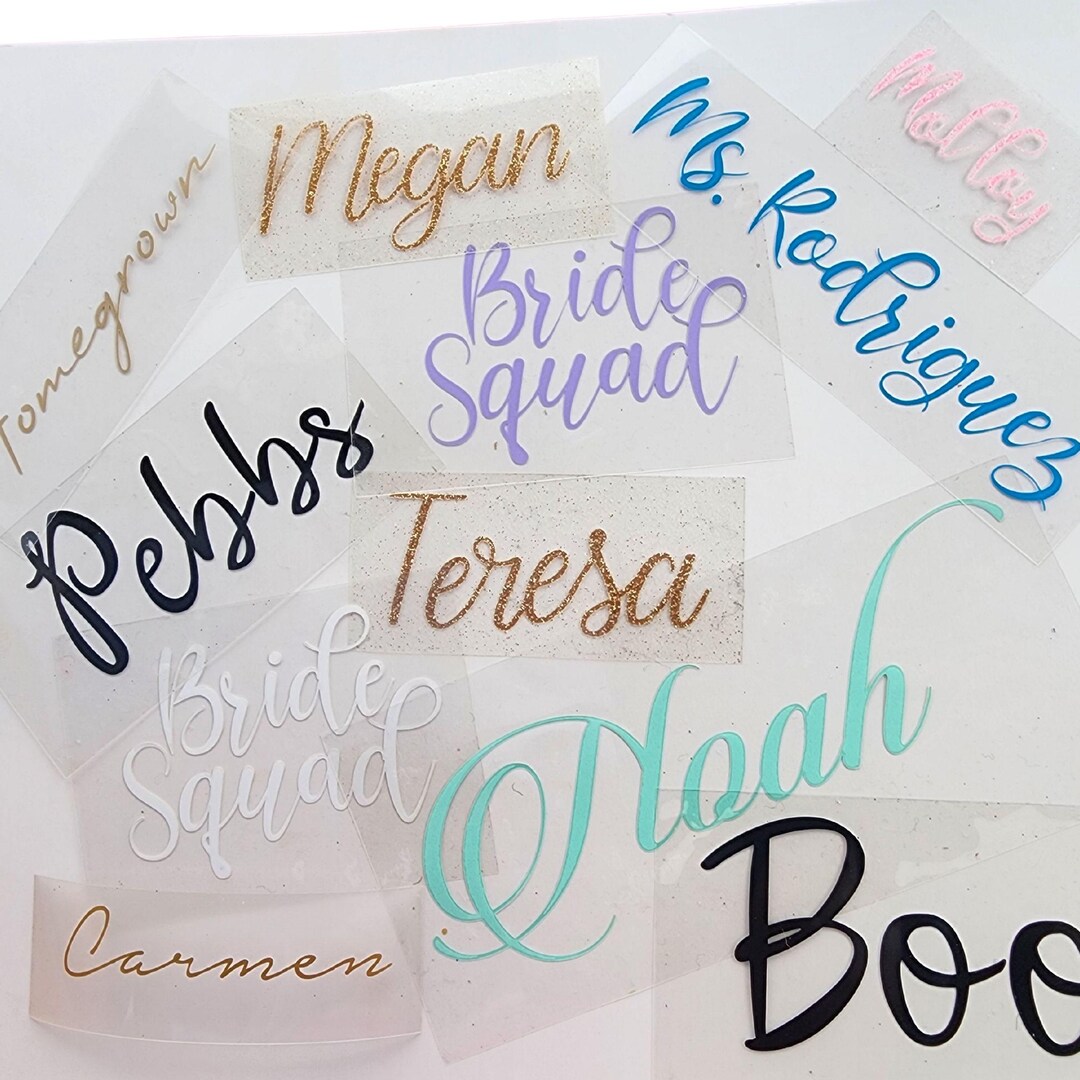 Tomegrown
Megan
Ms. Rodriguez
Molloy
Bride
Squad
Pebbs
Teresa
Bride
Squad
Noah
Carmen
Boo